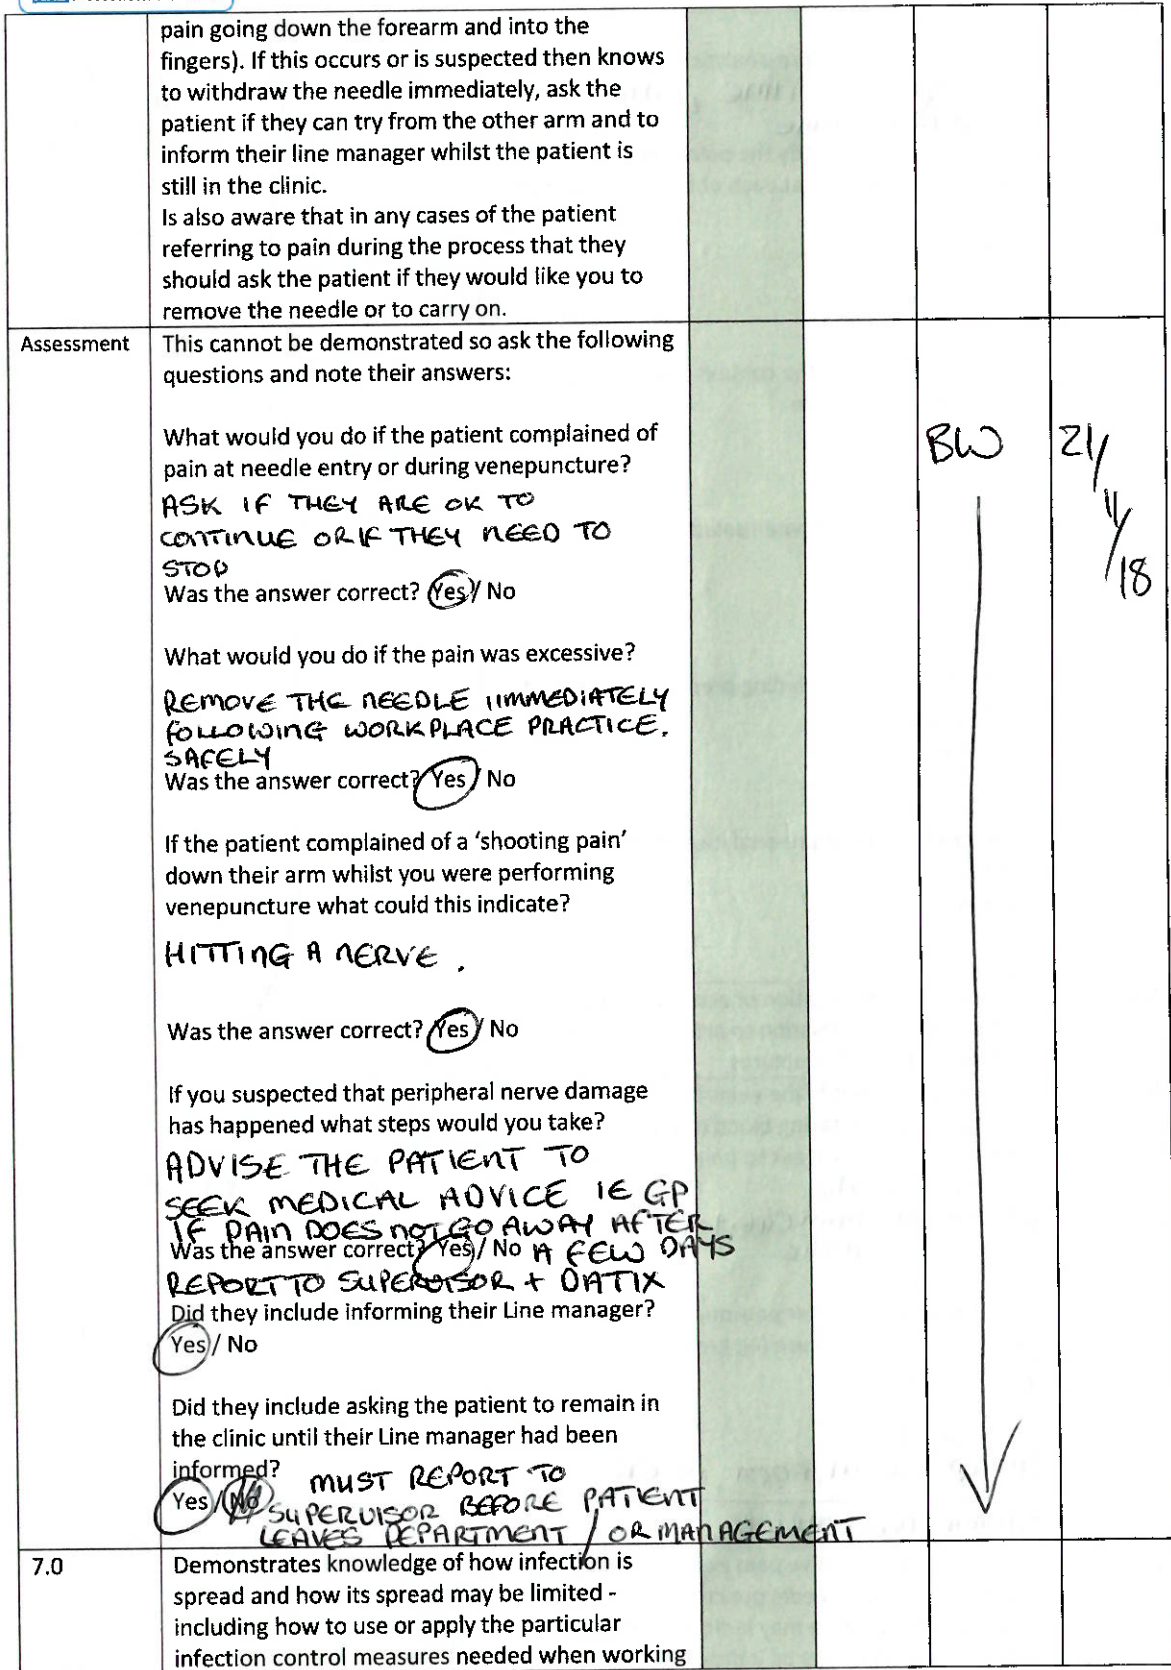 pain going down the forearm and into the
fingers). If this occurs or is suspected then knows
to withdraw the needle immediately, ask the
patient if they can try from the other arm and to
inform their line manager whilst the patient is
still in the clinic.
Is also aware that in any cases of the patient
referring to pain during the process that they
should ask the patient if they would like you to
remove the needle or to carry on.
Assessment
This cannot be demonstrated so ask the following
questions and note their answers:
What would you do if the patient complained of
pain at needle entry or during venepuncture?
ASK IF THEY ARE OK TO
CONTINUE OR IF THEY NEED TO
STOP
Was the answer correct? Yes / No
BW
21/
11/
/18
What would you do if the pain was excessive?
REMOVE THE NEEDLE IMMEDIATELY
FOLLOWING WORKPLACE PRACTICE.
SAFELY
Was the answer correct? Yes / No
If the patient complained of a 'shooting pain'
down their arm whilst you were performing
venepuncture what could this indicate?
HITTING A NERVE.
Was the answer correct? Yes / No
If you suspected that peripheral nerve damage
has happened what steps would you take?
ADVISE THE PATIENT TO
SEEK MEDICAL ADVICE IE GP
IF PAIN DOES NOT GO AWAY AFTER
Was the answer correct? Yes / No A FEW DAYS
REPORT TO SUPERVISOR + DATIX
Did they include informing their Line manager?
Yes / No
Did they include asking the patient to remain in
the clinic until their Line manager had been
informed? MUST REPORT TO
Yes / No SUPERVISOR BEFORE PATIENT
LEAVES DEPARTMENT / OR MANAGEMENT
7.0
Demonstrates knowledge of how infection is
spread and how its spread may be limited -
including how to use or apply the particular
infection control measures needed when working